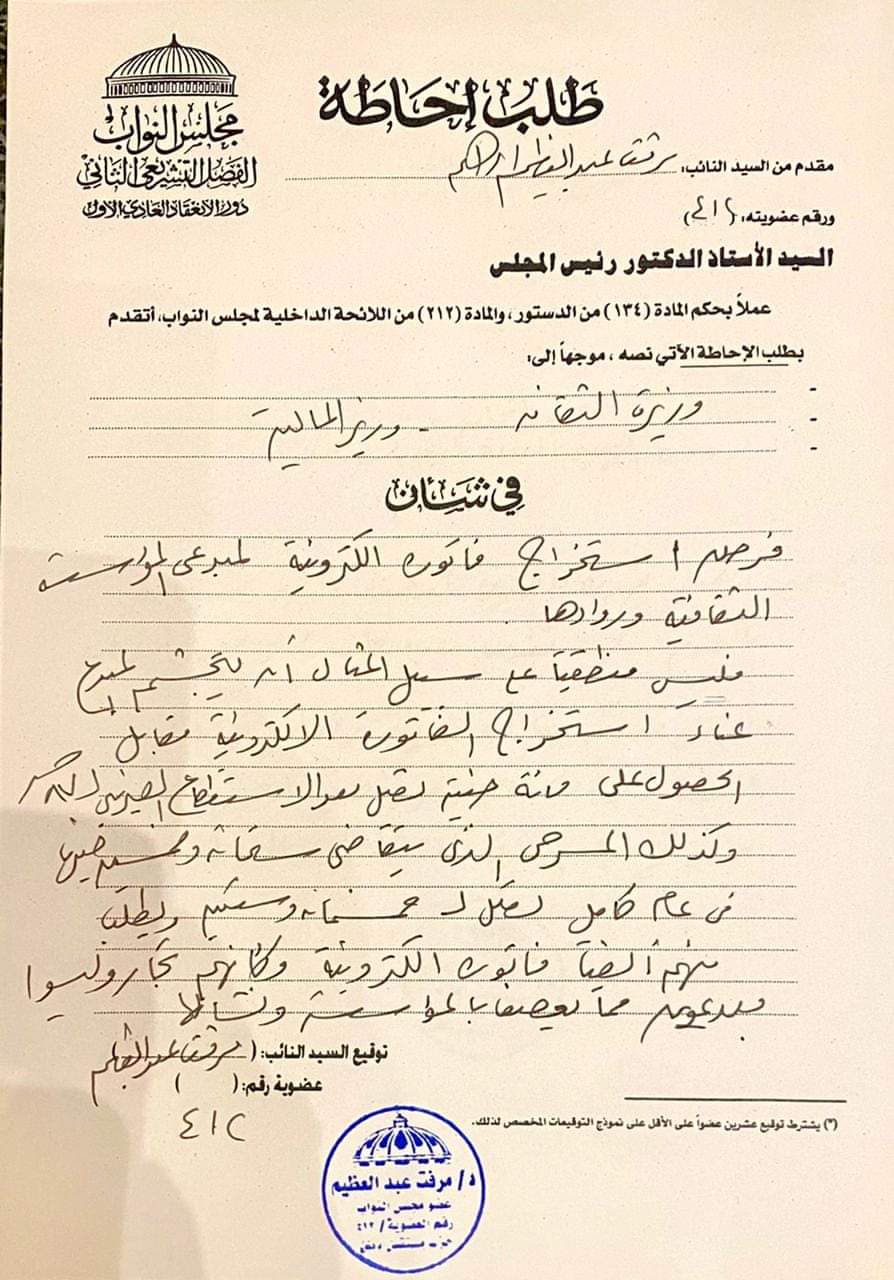 مجلس النواب
الفصل التشريعى الثانى
دور الانعقاد العادى الأول
طلب إحاطة
مقدم من السيد النائب: مرفت عبد العظيم ابراهيم
ورقم عضويته: (٤١٢)
السيد الأستاذ الدكتور رئيس المجلس
عملاً بحكم المادة (١٣٤) من الدستور، والمادة (٢١٢) من اللائحة الداخلية لمجلس النواب، أتقدم
بطلب الإحاطة الآتي نصه، موجهاً إلى:
- وزيرة الثقافة - وزير المالية
-
-
في شأن
استخراج فاتورة الكترونية لمبدعى المؤسسة
الثقافية وروادها.
فليس منطقياً على سبيل المثال أن يتجشم المبدع
عناء استخراج الفاتورة الالكترونية مقابل
الحصول على مائة جنية تصل بعد الاستقطاع
وكذلك المسرحى الذى يتقاضى ستمائة وخمسين جنيها
فى عام كامل تصل لـ خمسمائة وستين ويطلب
منهم أيضاً فاتورة الكترونية وكأنهم تجار وليسوا
مبدعين مما يعصف بالمؤسسة ونشاطها
توقيع السيد النائب: (مرفت عبد العظيم
عضوية رقم: ( )
٤١٢
(*) يشترط توقيع عشرين عضواً على الأقل على نموذج التوقيعات المخصص لذلك.
د/ مرفت عبد العظيم
عضو مجلس النواب
رقم العضوية / ٤١٢